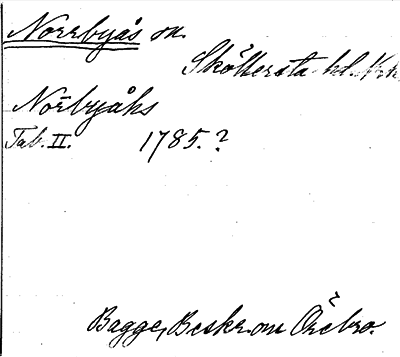 Norrbyås sn.
Sköllersta hd.
Norbyåhs
Tab. II. 1785.?
Bagge, Beskr. om Örebro.